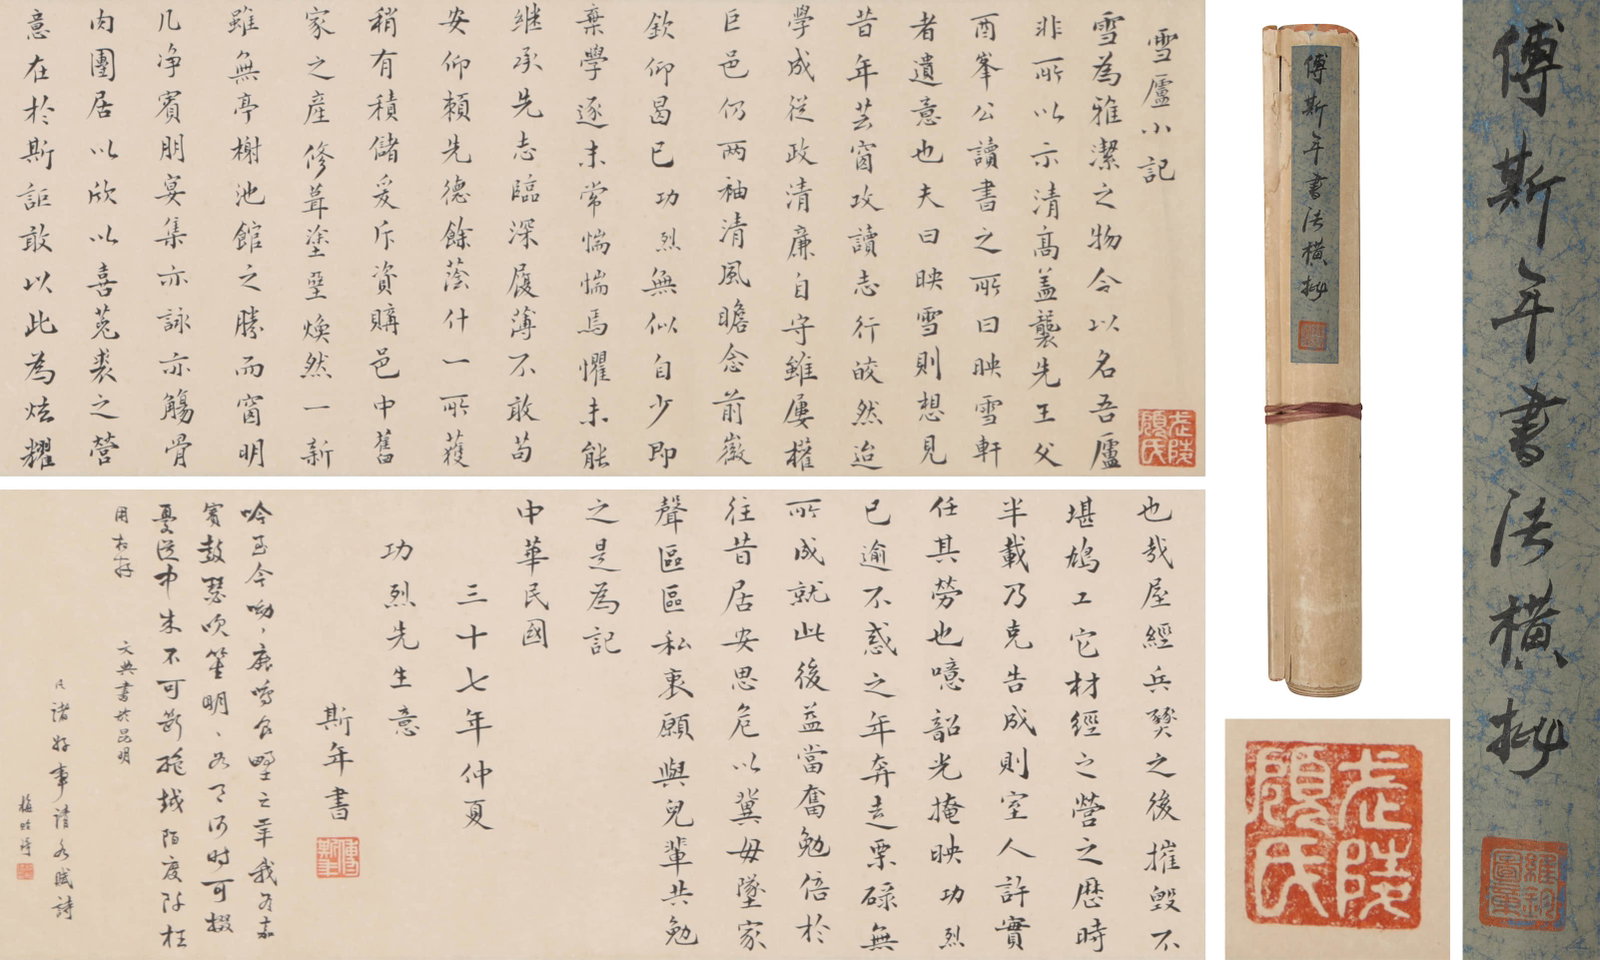 雪廬小記
雪為雅潔之物今以名吾廬
非所以示清高盖襲先王父
酉峯公讀書之所曰映雪軒
者遺意也夫曰映雪則想見
昔年芸窗攻讀志行皎然迨
學成從政清廉自守雖屢權
巨邑仍两袖清風瞻念前徽
欽仰曷已功烈無似自少即
棄學逐末常惴惴焉懼未能
继承先志臨深履薄不敢苟
安仰賴先德餘蔭什一所獲
稍有積儲爰斥資購邑中舊
家之產修葺塗塈煥然一新
雖無亭榭池館之勝而窗明
几净賓朋宴集亦詠亦觴骨
肉團居以欣以喜菟裘之營
意在於斯詎敢以此為炫耀
也哉屋經兵燹之後摧毁不
堪鳩工它材經之營之歷時
半載乃克告成則室人許實
任其勞也噫韶光掩映功烈
已逾不惑之年奔走栗碌無
所成就此後益當奮勉倍於
往昔居安思危以冀毋墜家
聲區區私衷願與兒輩共勉
之是為記
中華民國
三十七年仲夏
功烈先生意
斯年書
傅斯年
吟至今呦、鹿鳴食野之苹我有嘉
賓鼓瑟吹笙明、如月何时可掇
憂從中来不可断绝越陌度阡枉
用相存
文典書於昆明
凡諸好事請各賦詩
梅貽琦
武陵
顧氏
傅斯年書法横批
傅斯年書法横批
武陵
顧氏